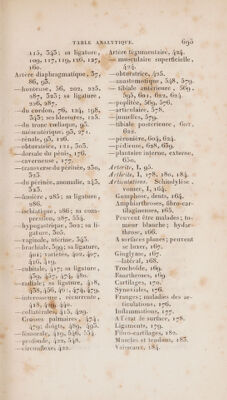 TABLE ANALYTIQUE. 695
115, 345; sa ligature,
109, 117, 119, 126, 127,
160.
Artère diaphragmatique, 37,
86, 95.
—honteuse, 56, 202, 225,
287, 325; sa ligature,
226, 287.
—du cordon, 76, 124, 198,
343; ses blessures, 125.
—du tronc cœliaque, 95.
—mésentérique, 95, 271.
—rénale, 95, 126.
—obturatrice, 121, 303.
—dorsale du pénis, 176.
—caverneuse, 177.
—transverse du périnée, 230,
325.
—du périnée, anomalie, 245,
325.
—fessière, 285; sa ligature,
286.
—ischiatique, 286; sa com-
pression, 287, 554.
—hypogastrique, 302; sa li-
gature, 305.
—vaginale, utérine, 345.
—brachiale, 399; sa ligature,
401; variétés, 402, 407,
416, 419.
—cubitale, 417; sa ligature,
439, 457, 474, 480.
—radiale; sa ligature, 418,
438, 456, 461, 474, 479.
—interosseuse, récurrente,
418, 440.
—collatérales, 415, 429.
Crosses palmaires, 474,
479; doigts, 489, 495.
—fémorale, 419, 546, 554.
—profonde, 422, 548.
—circonflexe, 422.
Artère tégumentaire, 424.
—musculaire superficielle,
424.
—obturatrice, 425.
—anastomotique, 548, 579.
—tibiale antérieure, 569,
595, 601, 622, 624.
—poplitée, 569, 576.
—articulaire, 578.
—jumelles, 579.
—tibiale postérieure, 601,
622.
—péronière, 603, 624.
—pédieuse, 628, 639.
—plantaire interne, externe,
650.
Artérite, I, 95.
Arthrite, I, 178, 180, 184.
Articulations. Schindylèse,
vomer, I, 164.
Gomphose, dents, 164.
Amphiarthroses, fibro-car-
tilagineuses, 165.
Peuvent être malades; tu-
meur blanche; hydar-
throse, 166.
A surfaces planes; peuvent
se luxer, 167.
Ginglyme, 167.
—latéral, 168.
Trochoïde, 169.
Enarthroses, 169.
Cartilages, 170.
Synoviales, 176.
Franges; maladies des ar-
ticulations, 176.
Inflammations, 177.
A l'état de surface, 178.
Ligaments, 179.
Fibro-cartilages, 182.
Muscles et tendons, 183.
Vaisseaux, 184.